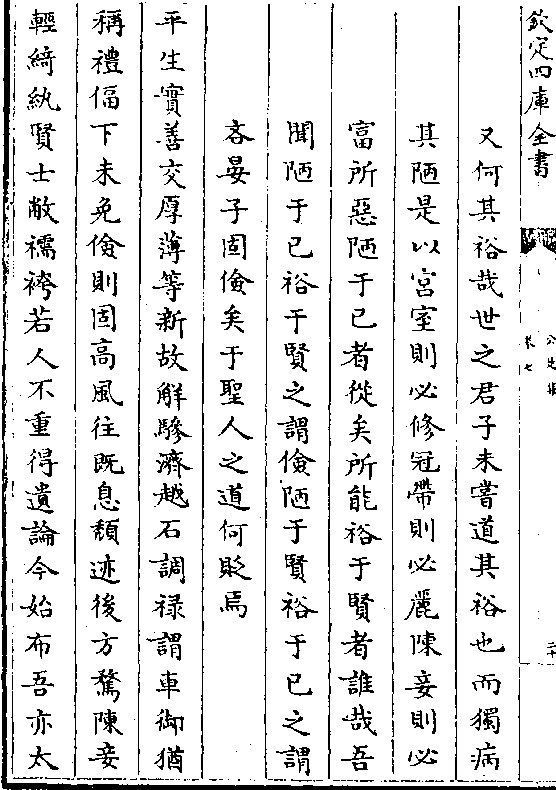 欽定四庫全書
公是集
卷七
二十
又何其裕哉世之君子未嘗道其裕也而獨病
其陋是以宮室則必修冠帶則必麗陳妾則必
富所惡陋于已者從矣所能裕于賢者誰哉吾
聞陋于已裕于賢之謂儉陋于賢裕于已之謂
吝晏子固儉矣于聖人之道何貶焉
平生實善交厚薄等新故解驂濟越石調禄謂車御猶
稱禮偪下未免儉則固高風往既息頽迹後方騖陳妾
輕綺紈賢士敝襦袴若人不重得遺論今始布吾亦太